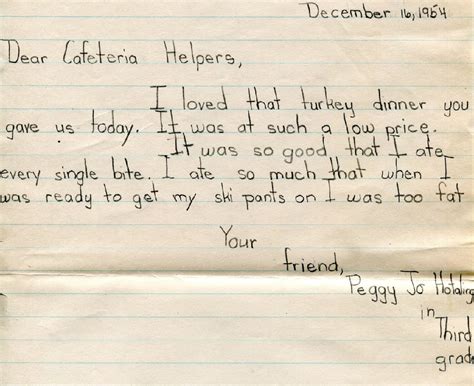 December 16, 1954
Dear Cafeteria Helpers,
I loved that turkey dinner you
gave us today. It was at such a low price.
It was so good that I ate
every single bite. I ate so much that when I
was ready to get my ski pants on I was too fat
Your
friend,
Peggy Jo Hotaling
in
Third
grade